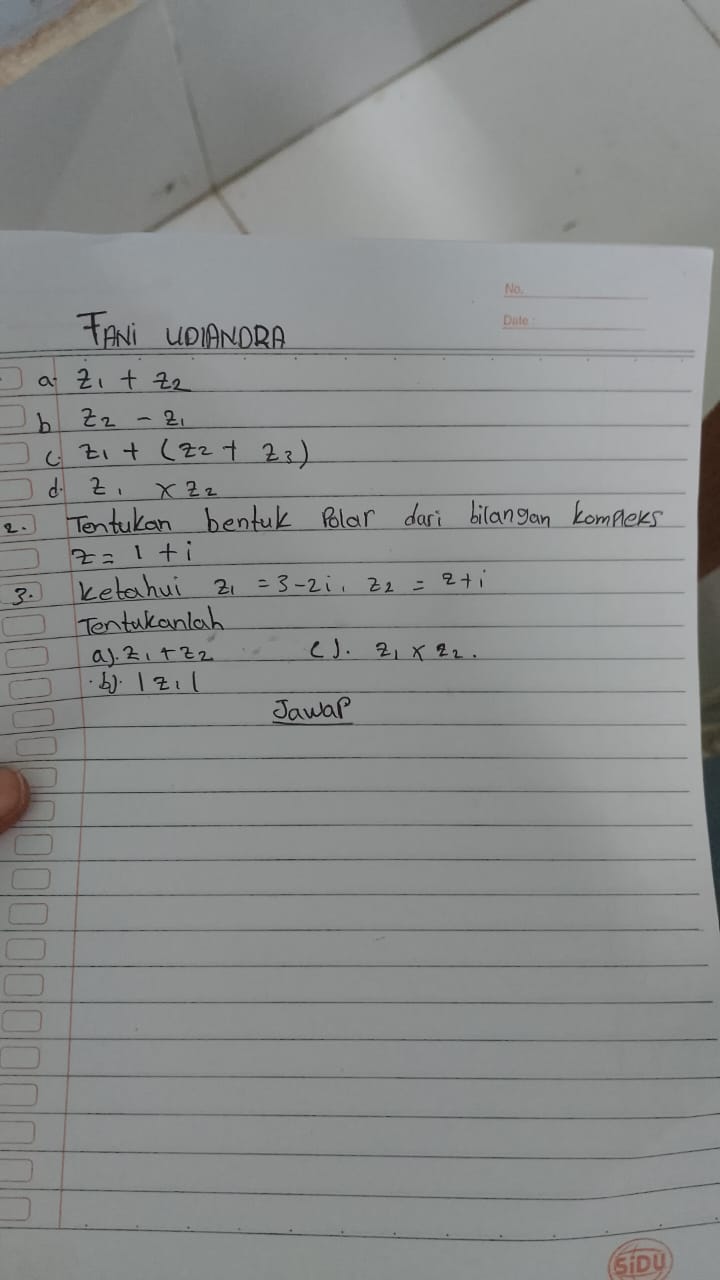 No.
Date :
FANi UDIANDRA
a. z₁ + z₂
b z₂ - z₁
c. z₁ + (z₂ + z₃)
d. z₁ x z₂
2. Tentukan bentuk Polar dari bilangan kompleks
z = 1 + i
3. Ketahui z₁ = 3-2i, z₂ = 2+i
Tentukanlah
a). z₁ + z₂ c). z₁ x z₂.
b). |z₁|
Jawap
SiDU